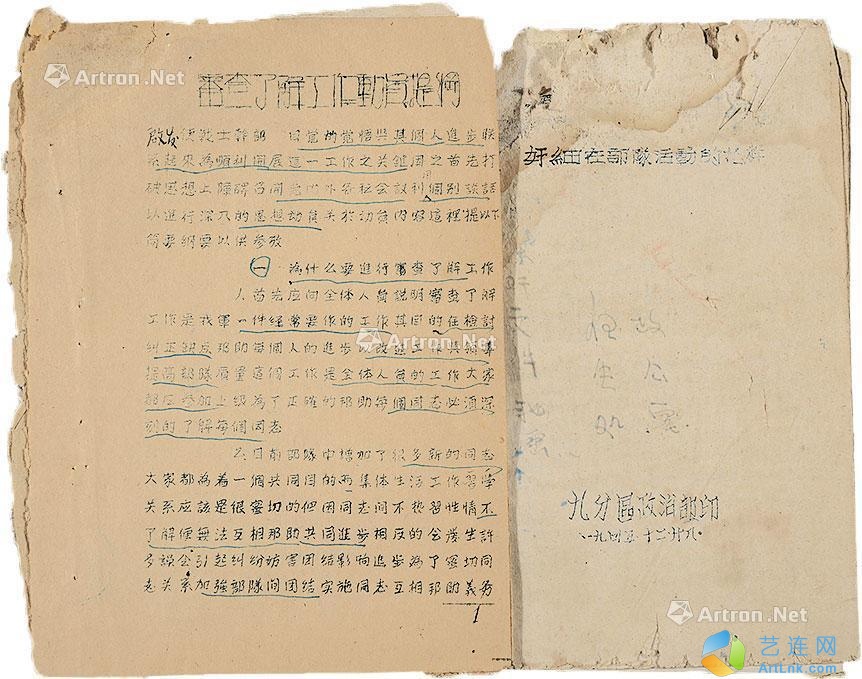 審查了解工作動員提綱
啟发使戰士幹部自觉的觉悟與其個人進步联
系起來為順利開展這一工作之关鍵因之首先打
破思想上障碍召同志的外各种会议利用個別談話
以進行深入的思想动員关於动員内容這裡提以下
简要綱要以供参放
一 為什么要進行審查了解工作
人首先应向全体人員説明審查了解
工作是我軍一件経常要作的工作其目的在檢討
纠正缺点帮助每個人的進步以改進工作與領導
提高部隊质量這個工作是全体人員的工作大家
都应参加上級為了正確的帮助每個同志必須深
刻的了解每個同志
目前部隊中增加了很多新的同志
大家都為着一個共同目的而集体生活工作學習
关系应該是很密切的但因同志间不熟習性情不
了解便無法互相帮助共同進步相反的会發生許
多誤会引起纠纷妨害团结影响進步為了密切同
志关系加強部隊间团结实施同志互相帮助義务
1
奸細在部隊活動的
政
公
九分區政治部印
一九四五 十二 廿八
Artron.Net
Artron.Net
Artron.Net
Artron.Net
艺连网
ArtLnk.Com